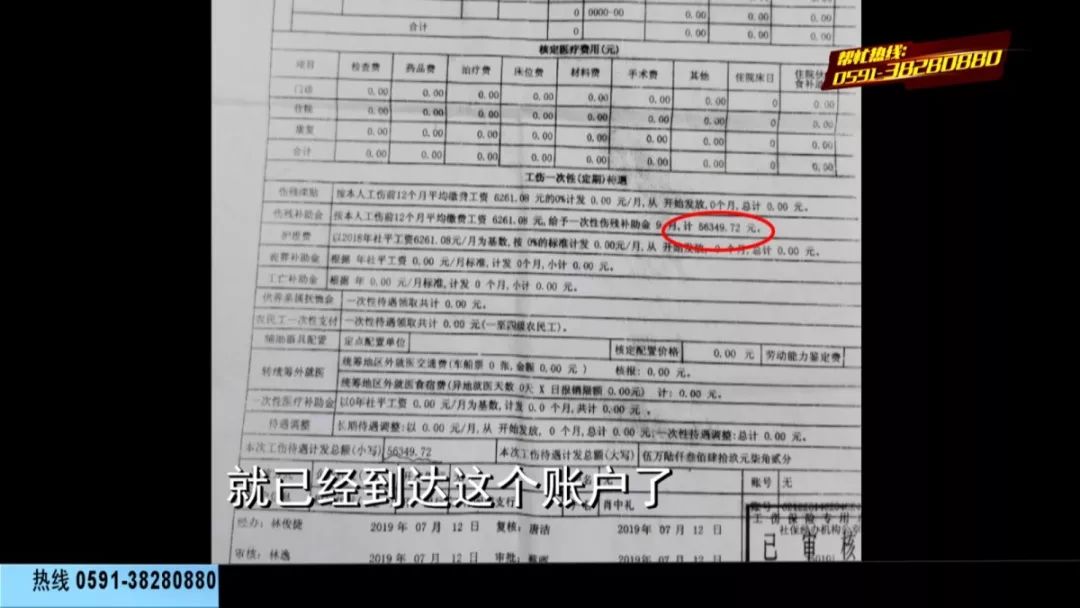 帮忙热线:
0591-38280880
0 0000-00 0 0.00 0.00 0.00
合计 0 0.00 0.00 0.00
核定医疗费用(元)
项目 检查费 药品费 治疗费 床位费 材料费 手术费 其他 住院床日 住院伙食补
门诊 0.00 0.00 0.00 0.00 0.00 0.00 0.00 0 0.00
住院 0.00 0.00 0.00 0.00 0.00 0.00 0.00 0 0.00
康复 0.00 0.00 0.00 0.00 0.00 0.00 0.00 0 0.00
合计 0.00 0.00 0.00 0.00 0.00 0.00 0.00 0 0.00
工伤一次性(定期)待遇
伤残津贴 按本人工伤前12个月平均缴费工资 6261.08 元的0%计发 0.00 元/月,从 开始发放,0个月,总计 0.00 元。
伤残补助金 按本人工伤前12个月平均缴费工资 6261.08 元,给予一次性伤残补助金 9 月,计 56349.72 元。
护理费 以2018年社平工资6261.08元/月为基数,按 0%的标准计发 0.00元/月,从 开始发放, 0 个月,总计 0.00 元。
丧葬补助金 根据 年社平工资 0.00 元/月标准,计发 0个月,小计 0.00 元。
工亡补助金 根据 年 0.00 元/月标准,计发 0 个月,小计 0.00 元。
供养亲属抚恤金 一次性待遇领取共计 0.00 元。
农民工一次性支付 一次性待遇领取共计 0.00 元(一至四级农民工)。
辅助器具配置 定点配置单位 核定配置价格 0.00 元 劳动能力鉴定费
转统筹外就医 统筹地区外就医交通费(车船票 0 张,金额 0.00 元) 核报: 0.00 元。
统筹地区外就医食宿费(异地就医天数 0天 X 日报销限额 0.00元) 计: 0.00 元。
一次性医疗补助金 以0年社平工资 0.00 元/月为基数,计发 0.0 个月,共计 0.00 元。
待遇调整 长期待遇调整:以 0.00 元/月,从 开始发放, 0 个月,总计 0.00 元;一次性待遇调整:总计 0.00 元。
本次工伤待遇计发总额(小写) 56349.72 本次工伤待遇计发总额(大写) 伍万陆仟叁佰肆拾玖元柒角贰分
无 账号 无
支行 肖中礼 账号
就已经到达这个账户了
经办: 林俊健 2019 年 07 月 12 日 复核: 唐洁 2019 年 07 月 12 日
审核: 林逸 2019 年 07 月 12 日 审批: 2019 年 07 月 12 日
工伤保险专用
社保经办机构
已审核
热线 0591-38280880